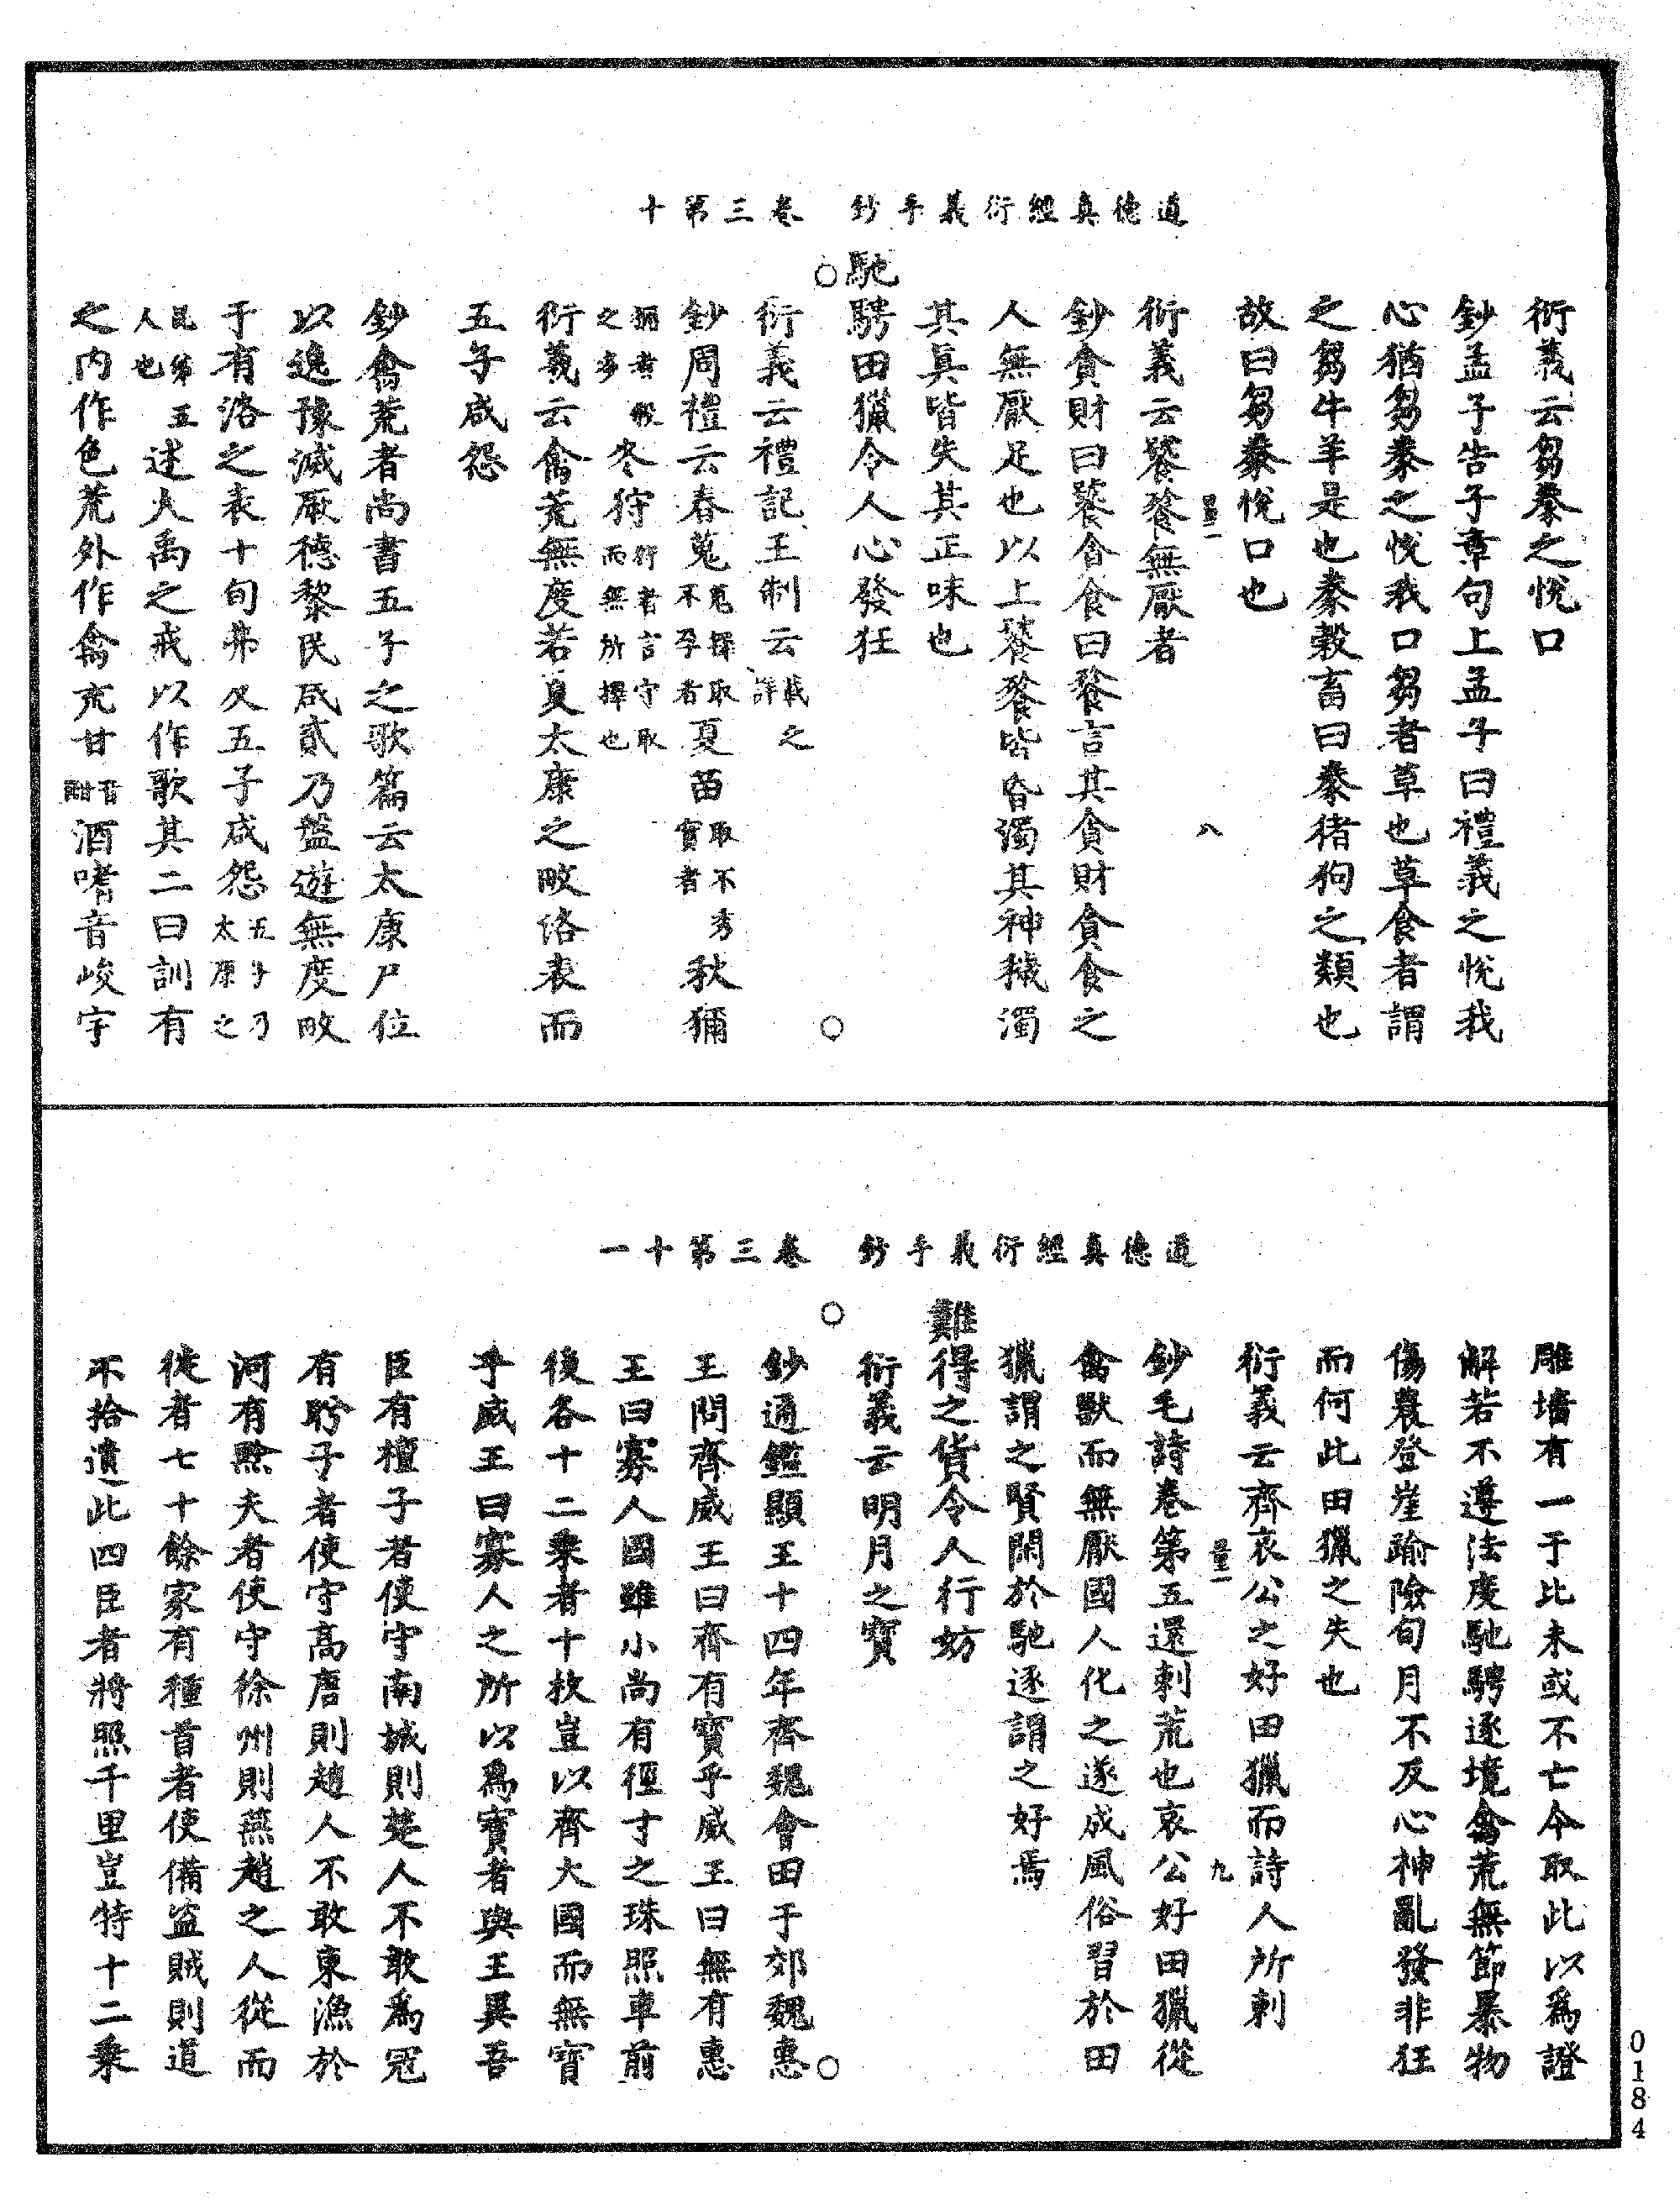 道德真經衍義手鈔　卷三第十
衍義云芻豢之悅口
鈔孟子告子章句上孟子曰禮義之悅我
心猶芻豢之悅我口芻者草也草食者謂
之芻牛羊是也豢穀畜曰豢猪狗之類也
故曰芻豢悅口也
八
衍義云饕餮無厭者
鈔貪財曰饕貪食曰餮言其貪財貪食之
人無厭足也以上饕餮皆昏濁其神穢濁
其真皆失其正味也
馳騁田獵令人心發狂
衍義云禮記王制云載之詳
鈔周禮云春蒐蒐擇取不孕者夏苗取不秀實者秋獮
獮者殺之多冬狩狩者言守取而無所擇也
衍義云禽荒無度若夏太康之畋洛表而
五子咸怨
鈔禽荒者尚書五子之歌篇云太康尸位
以逸豫滅厥德黎民咸貳乃盤遊無度畋
于有洛之表十旬弗反五子咸怨五子乃太康之
昆弟五人也述大禹之戒以作歌其二曰訓有
之內作色荒外作禽荒甘音酣酒嗜音峻宇
道德真經衍義手鈔　卷三第十一
雕墻有一于此未或不亡今取此以為證
解若不遵法度馳騁逐境禽荒無節暴物
傷農登崖踰險旬月不反心神亂發非狂
而何此田獵之失也
衍義云齊哀公之好田獵而詩人所刺
九
鈔毛詩卷第五還刺荒也哀公好田獵從
禽獸而無厭國人化之遂成風俗習於田
獵謂之賢閑於馳逐謂之好焉
難得之貨令人行妨
衍義云明月之寶
鈔通鑑顯王十四年齊魏會田于郊魏惠
王問齊威王曰齊有寶乎威王曰無有惠
王曰寡人國雖小尚有徑寸之珠照車前
後各十二乘者十枚豈以齊大國而無寶
乎威王曰寡人之所以為寶者與王異吾
臣有檀子者使守南城則楚人不敢為冦
有盻子者使守高唐則趙人不敢東漁於
河有黙夫者使守徐州則燕趙之人從而
徙者七十餘家有種首者使備盜賊則道
不拾遺此四臣者將照千里豈特十二乘
0184